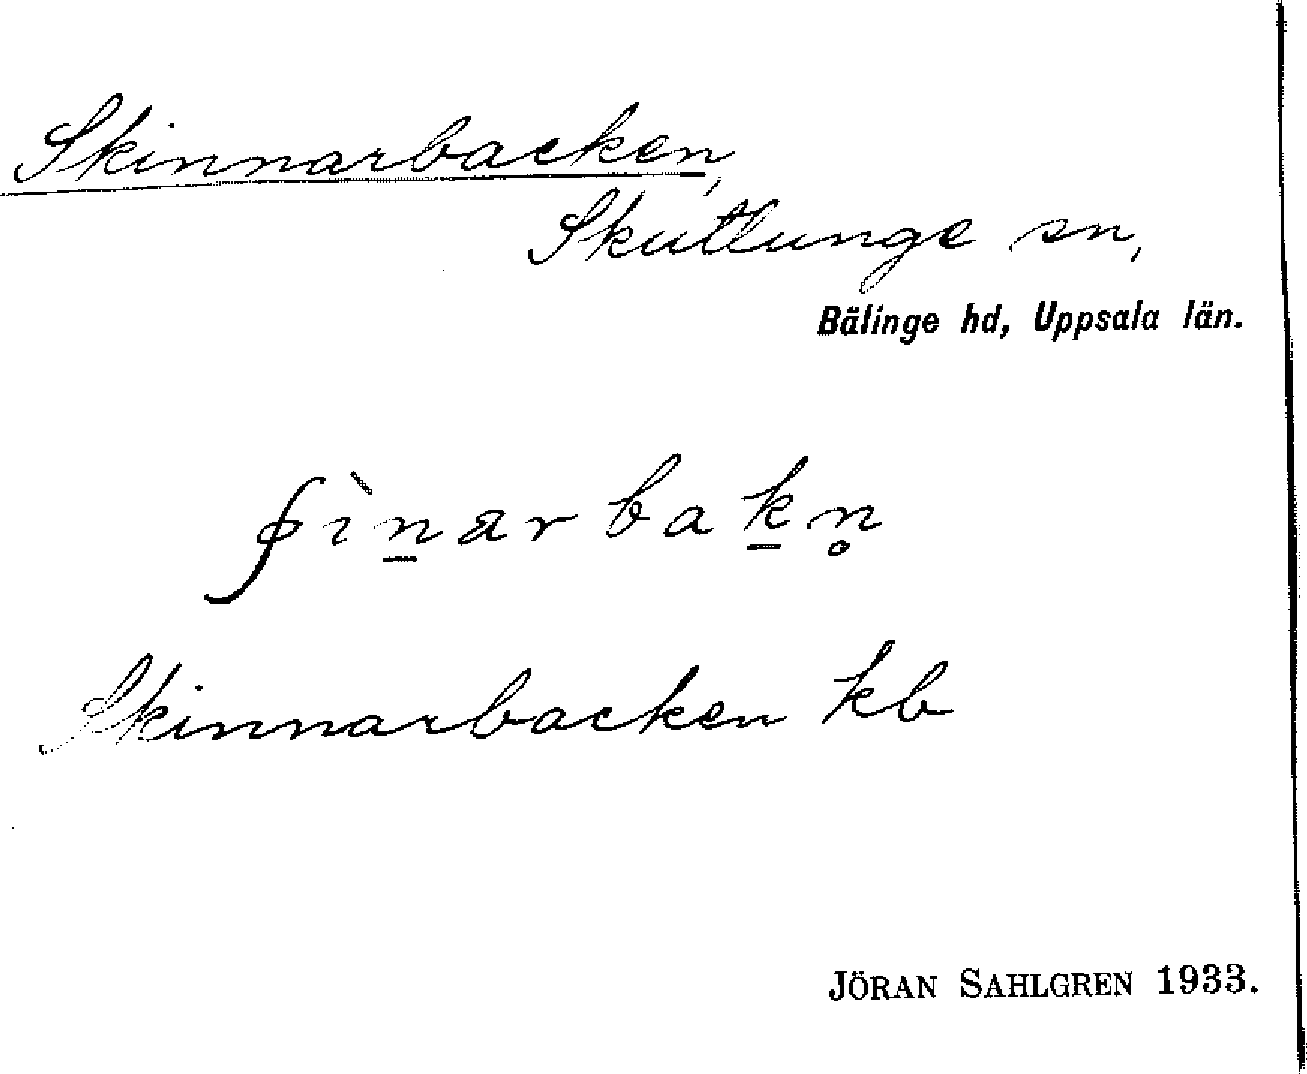 Skinnarbacken,
Skuttunge sn,
Bälinge hd, Uppsala län.
ʃìn̲arbak̲n̥
Skinnarbacken kb
JÖRAN SAHLGREN 1933.